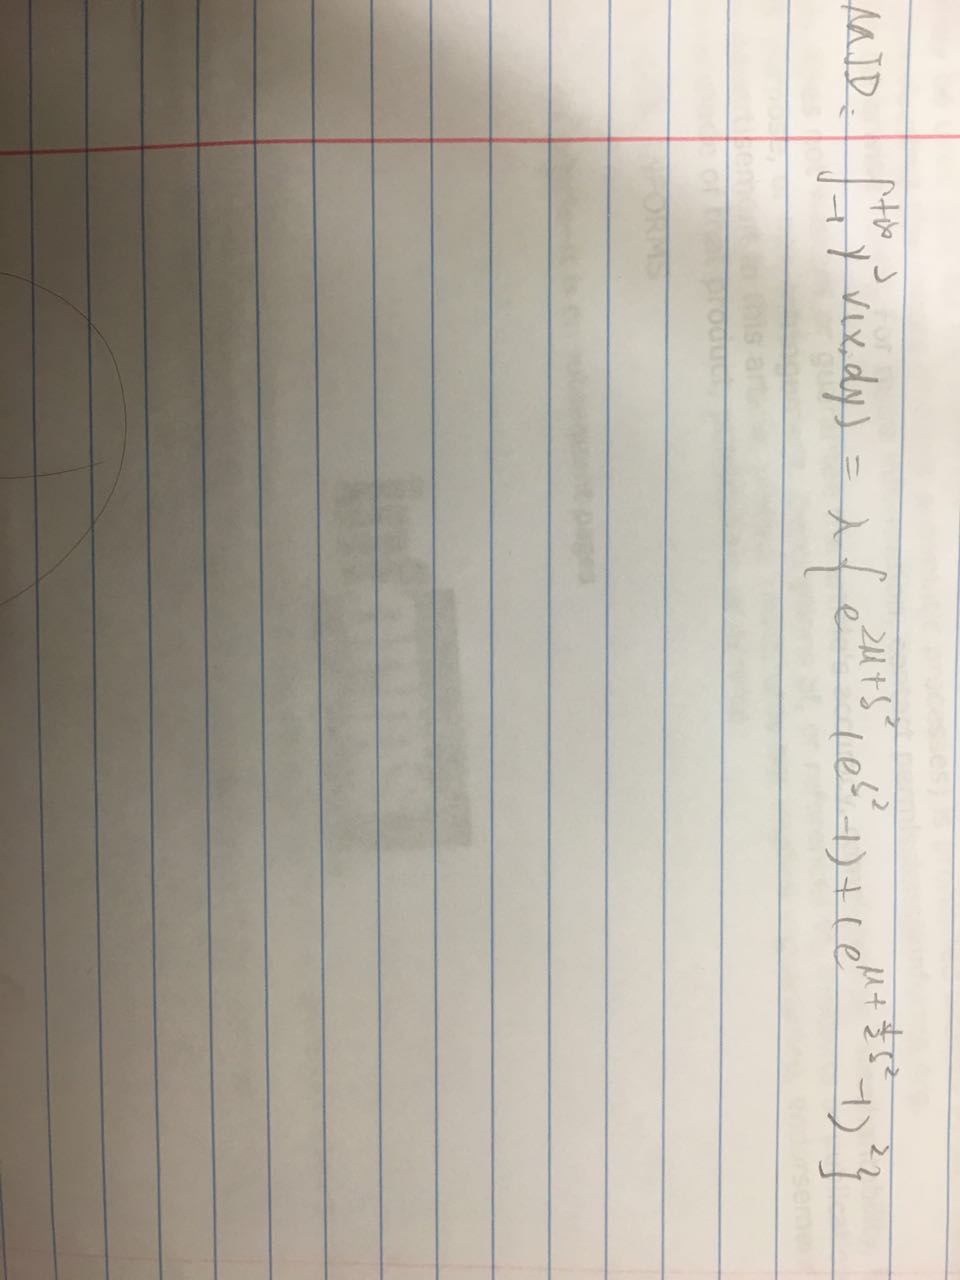 MJD: ∫_{-1}^{+∞} y² ν(x,dy) = λ { e^{2μ+ς²} (e^{ς²} -1) + (e^{μ+½ς²} -1)² }